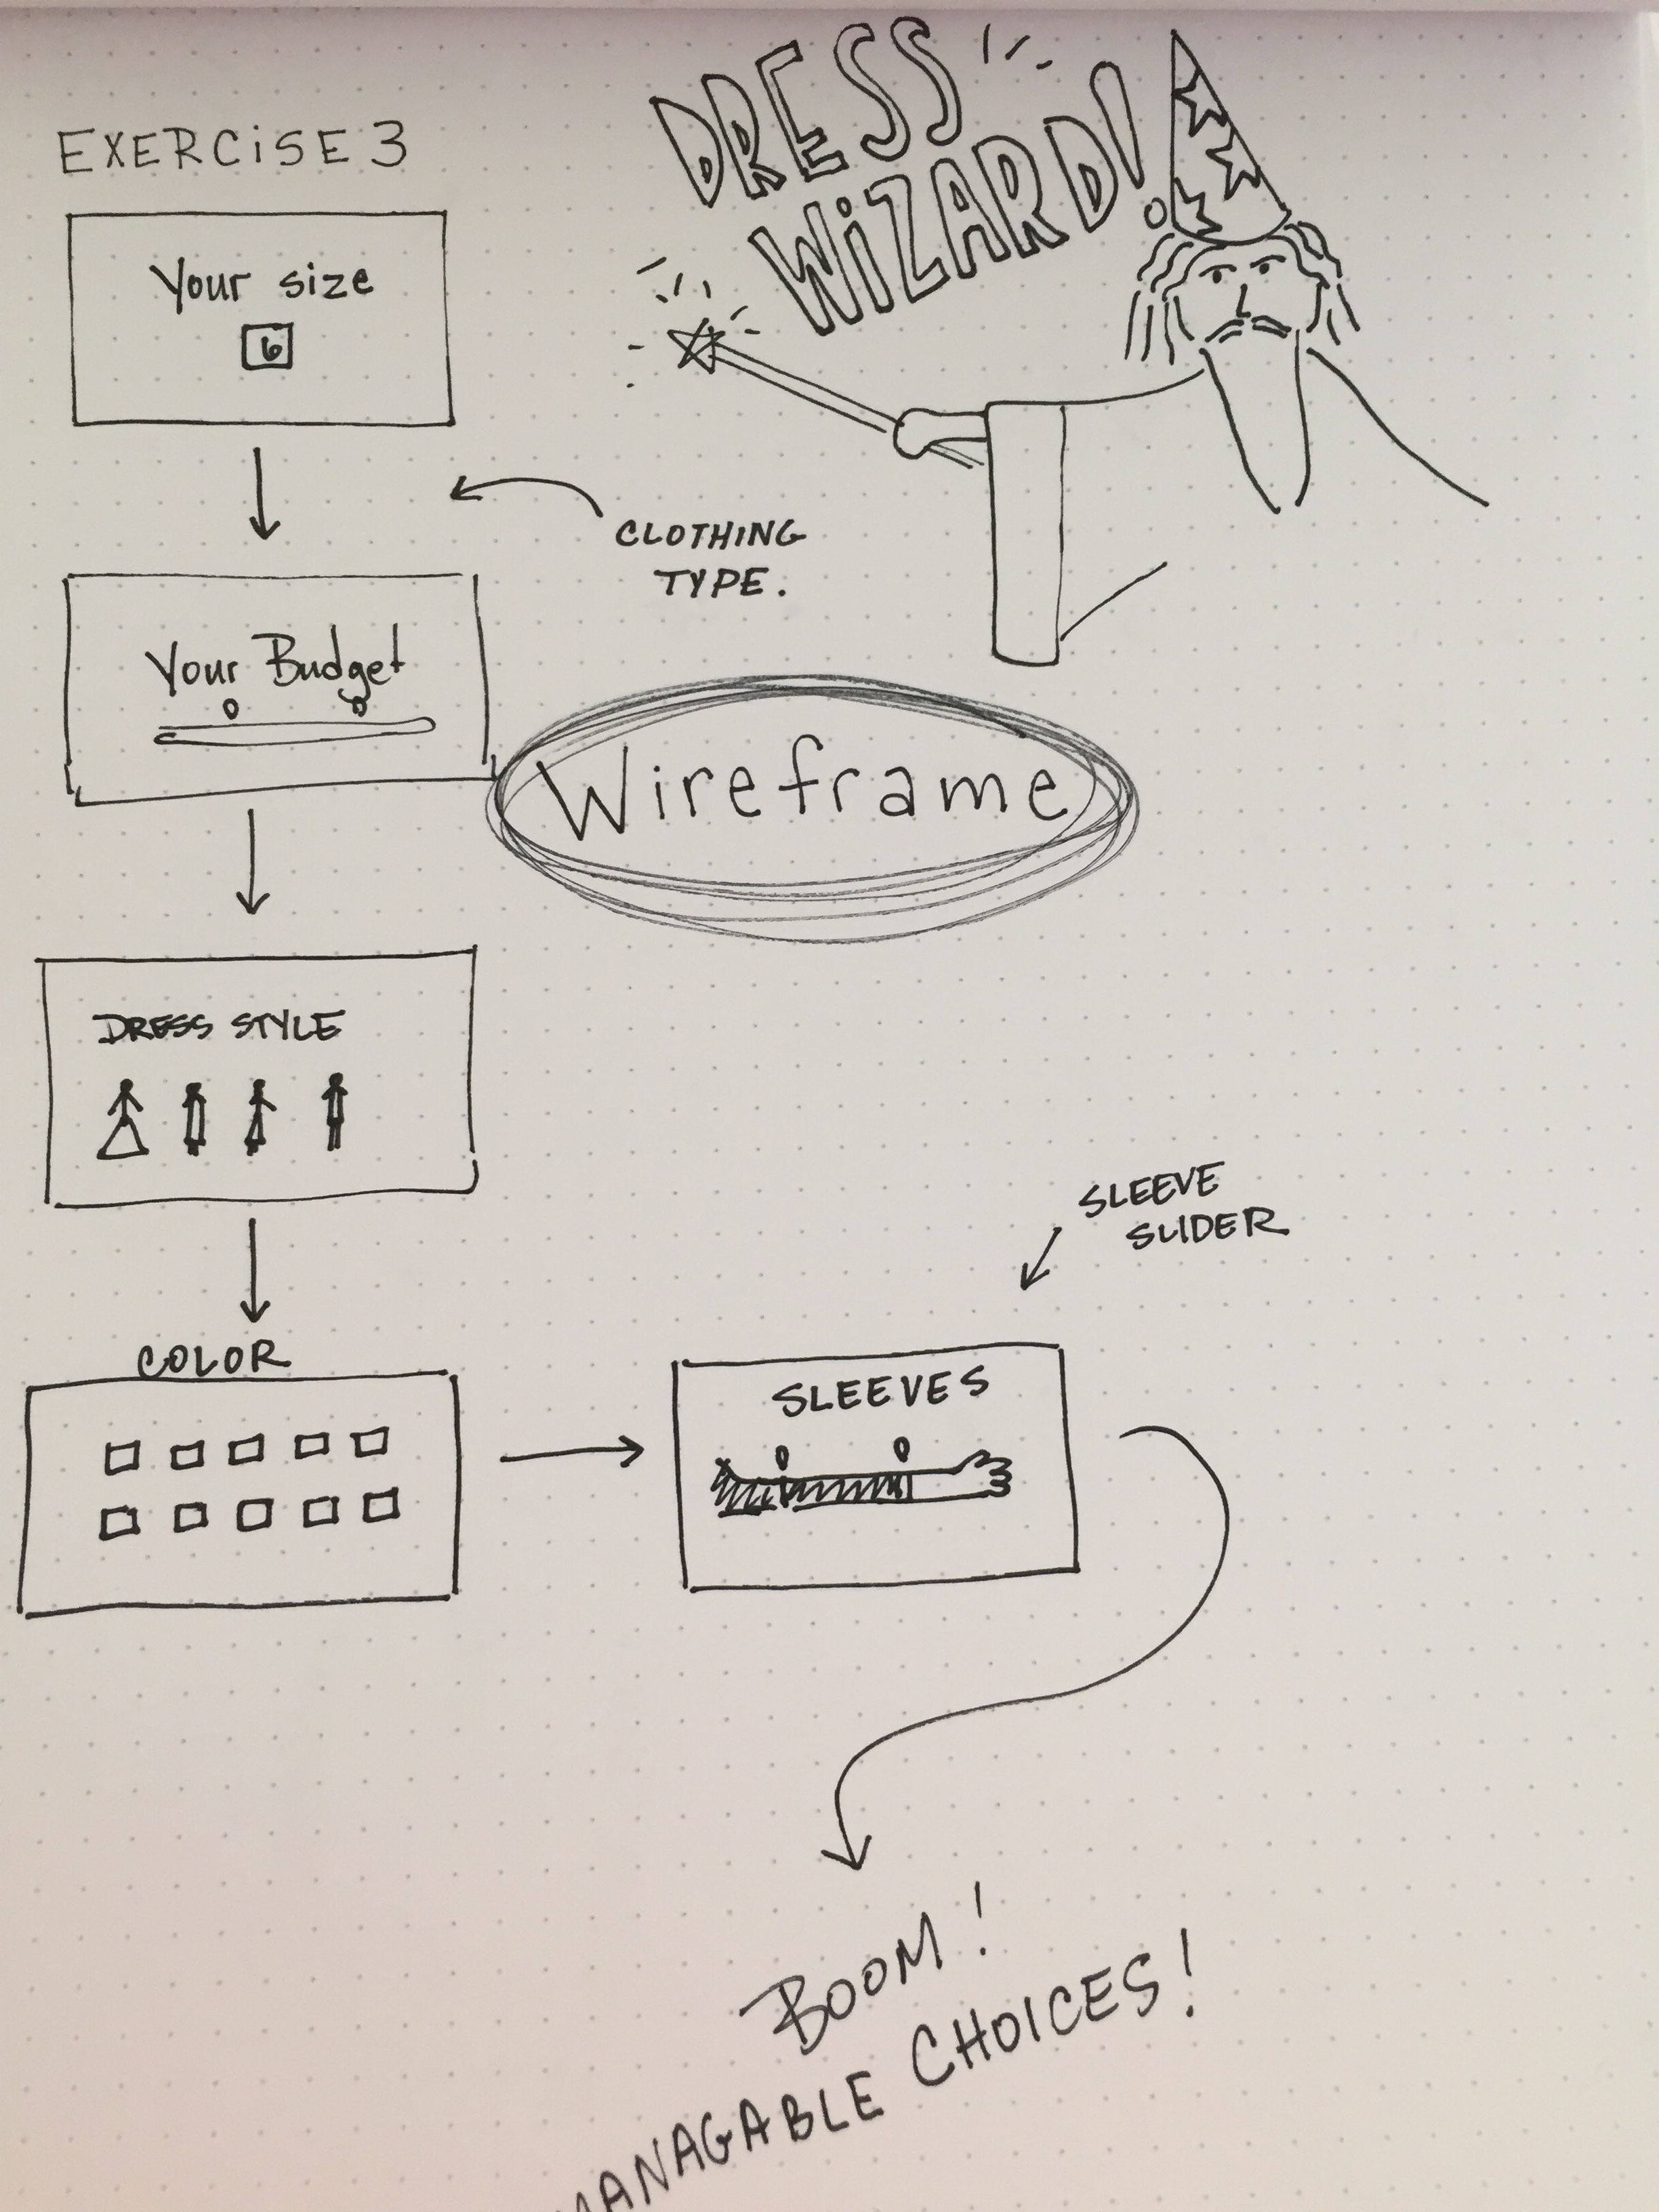 EXERCISE 3
DRESS
WIZARD!
Your size
6
CLOTHING
TYPE.
Your Budget
Wireframe
DRESS STYLE
COLOR
SLEEVE
SLIDER
SLEEVES
BOOM!
MANAGABLE CHOICES!